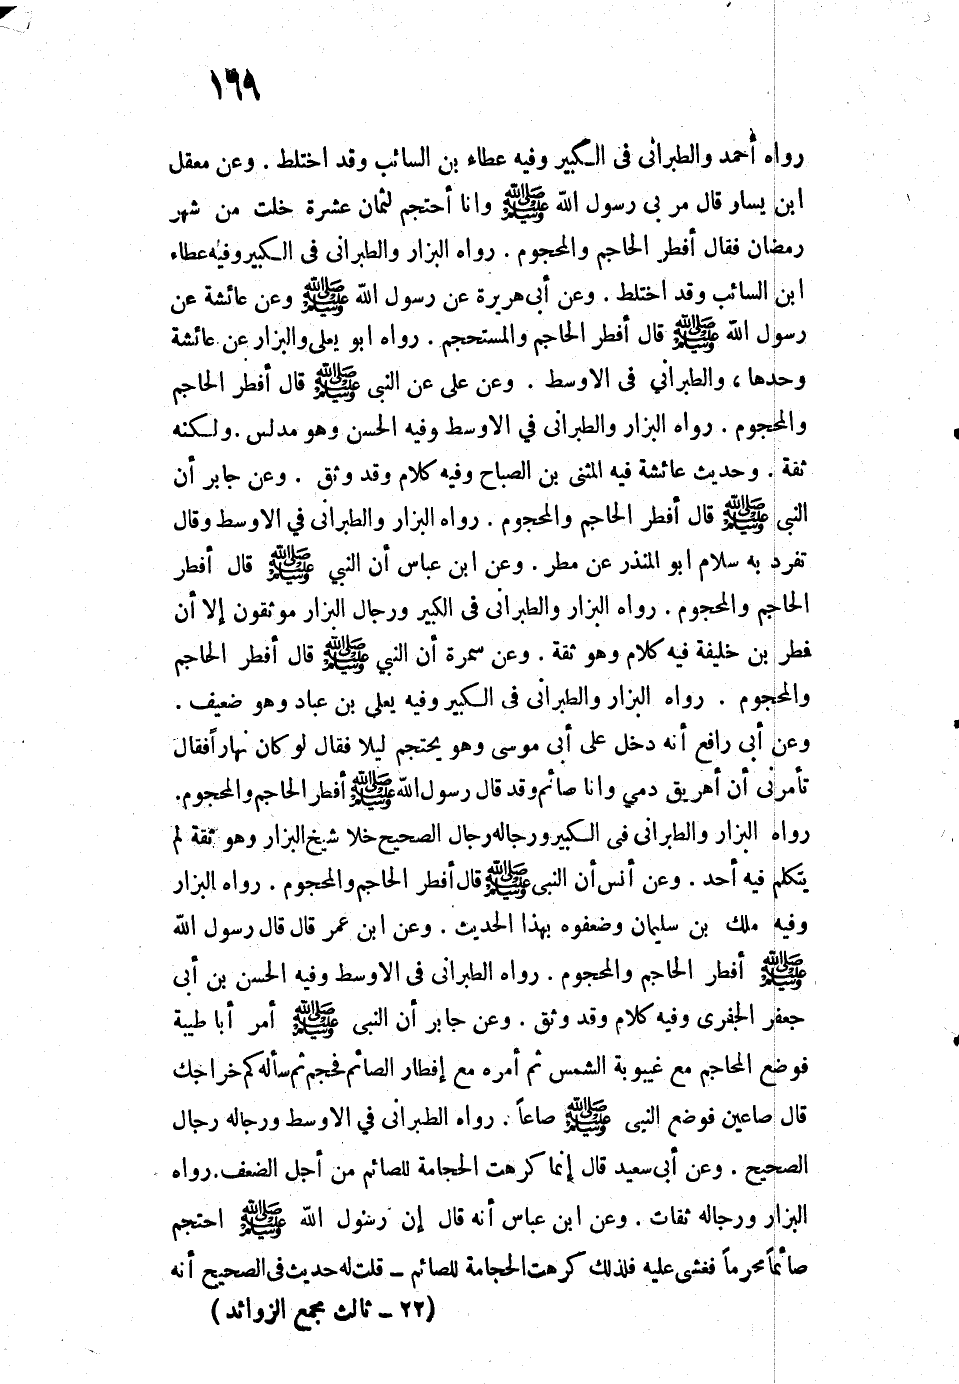 ١٦٩
رواه أحمد والطبرانى فى الكبير وفيه عطاء بن السائب وقد اختلط . وعن معقل
ابن يسار قال مر بى رسول الله ﷺ وانا أحتجم لثمان عشرة خلت من شهر
رمضان فقال أفطر الحاجم والمحجوم . رواه البزار والطبرانى فى الكبير وفيه عطاء
ابن السائب وقد اختلط . وعن أبى هريرة عن رسول الله ﷺ وعن عائشة عن
رسول الله ﷺ قال أفطر الحاجم والمستحجم . رواه ابو يعلى والبزار عن عائشة
وحدها ، والطبراني فى الاوسط . وعن على عن النبى ﷺ قال أفطر الحاجم
والمحجوم . رواه البزار والطبرانى في الاوسط وفيه الحسن وهو مدلس . ولكنه
ثقة . وحديث عائشة فيه المثنى بن الصباح وفيه كلام وقد وثق . وعن جابر أن
النبى ﷺ قال أفطر الحاجم والمحجوم . رواه البزار والطبرانى في الاوسط وقال
تفرد به سلام ابو المنذر عن مطر . وعن ابن عباس أن النبي ﷺ قال أفطر
الحاجم والمحجوم . رواه البزار والطبرانى فى الكبير ورجال البزار موثقون إلا أن
فطر بن خليفة فيه كلام وهو ثقة . وعن سمرة أن النبي ﷺ قال أفطر الحاجم
والمحجوم . رواه البزار والطبرانى فى الكبير وفيه يعلي بن عباد وهو ضعيف .
وعن أبى رافع أنه دخل على أبى موسى وهو يحتجم ليلا فقال لو كان نهاراً فقال
تأمرنى أن أهريق دمي وانا صائم وقد قال رسول الله ﷺ أفطر الحاجم والمحجوم.
رواه البزار والطبرانى فى الكبير ورجاله رجال الصحيح خلا شيخ البزار وهو ثقة لم
يتكلم فيه أحد . وعن أنس أن النبى ﷺ قال أفطر الحاجم والمحجوم . رواه البزار
وفيه ملك بن سليمان وضعفوه بهذا الحديث . وعن ابن عمر قال قال رسول الله
ﷺ أفطر الحاجم والمحجوم . رواه الطبرانى فى الاوسط وفيه الحسن بن أبى
جعفر الجفرى وفيه كلام وقد وثق . وعن جابر أن النبى ﷺ أمر أبا طيبة
فوضع المحاجم مع غيبوبة الشمس ثم أمره مع إفطار الصائم فحجم ثم سأله كم خراجك
قال صاعين فوضع النبى ﷺ صاعاً . رواه الطبرانى في الاوسط ورجاله رجال
الصحيح . وعن أبى سعيد قال إنما كرهت الحجامة للصائم من أجل الضعف . رواه
البزار ورجاله ثقات . وعن ابن عباس أنه قال إن رسول الله ﷺ احتجم
صائماً محرماً فغشى عليه فلذلك كرهت الحجامة للصائم ــ قلت له حديث فى الصحيح أنه
(٢٢ ــ ثالث مجمع الزوائد)